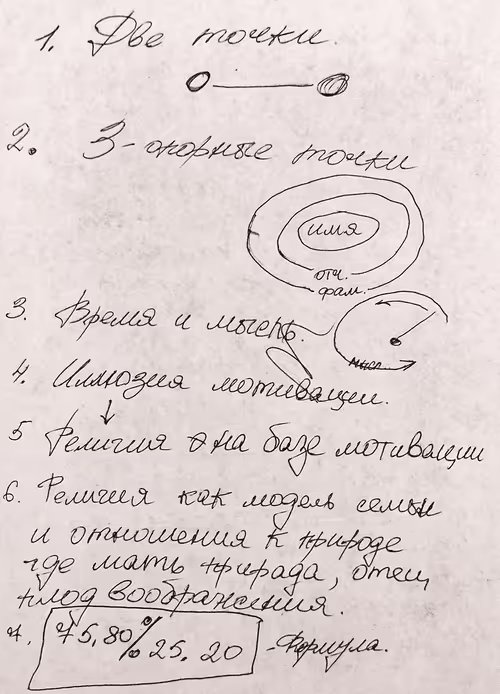 1. Две точки.
2. 3-опорные точки
имя
отч.
фам.
3. Время и мысль.
мысл.
4. Иллюзия мотивации.
5 Религия на базе мотивации
6. Религия как модель семьи
и отношения к природе
где мать природа, отец,
плод воображения.
7. 75.80% 25.20 - Формула.